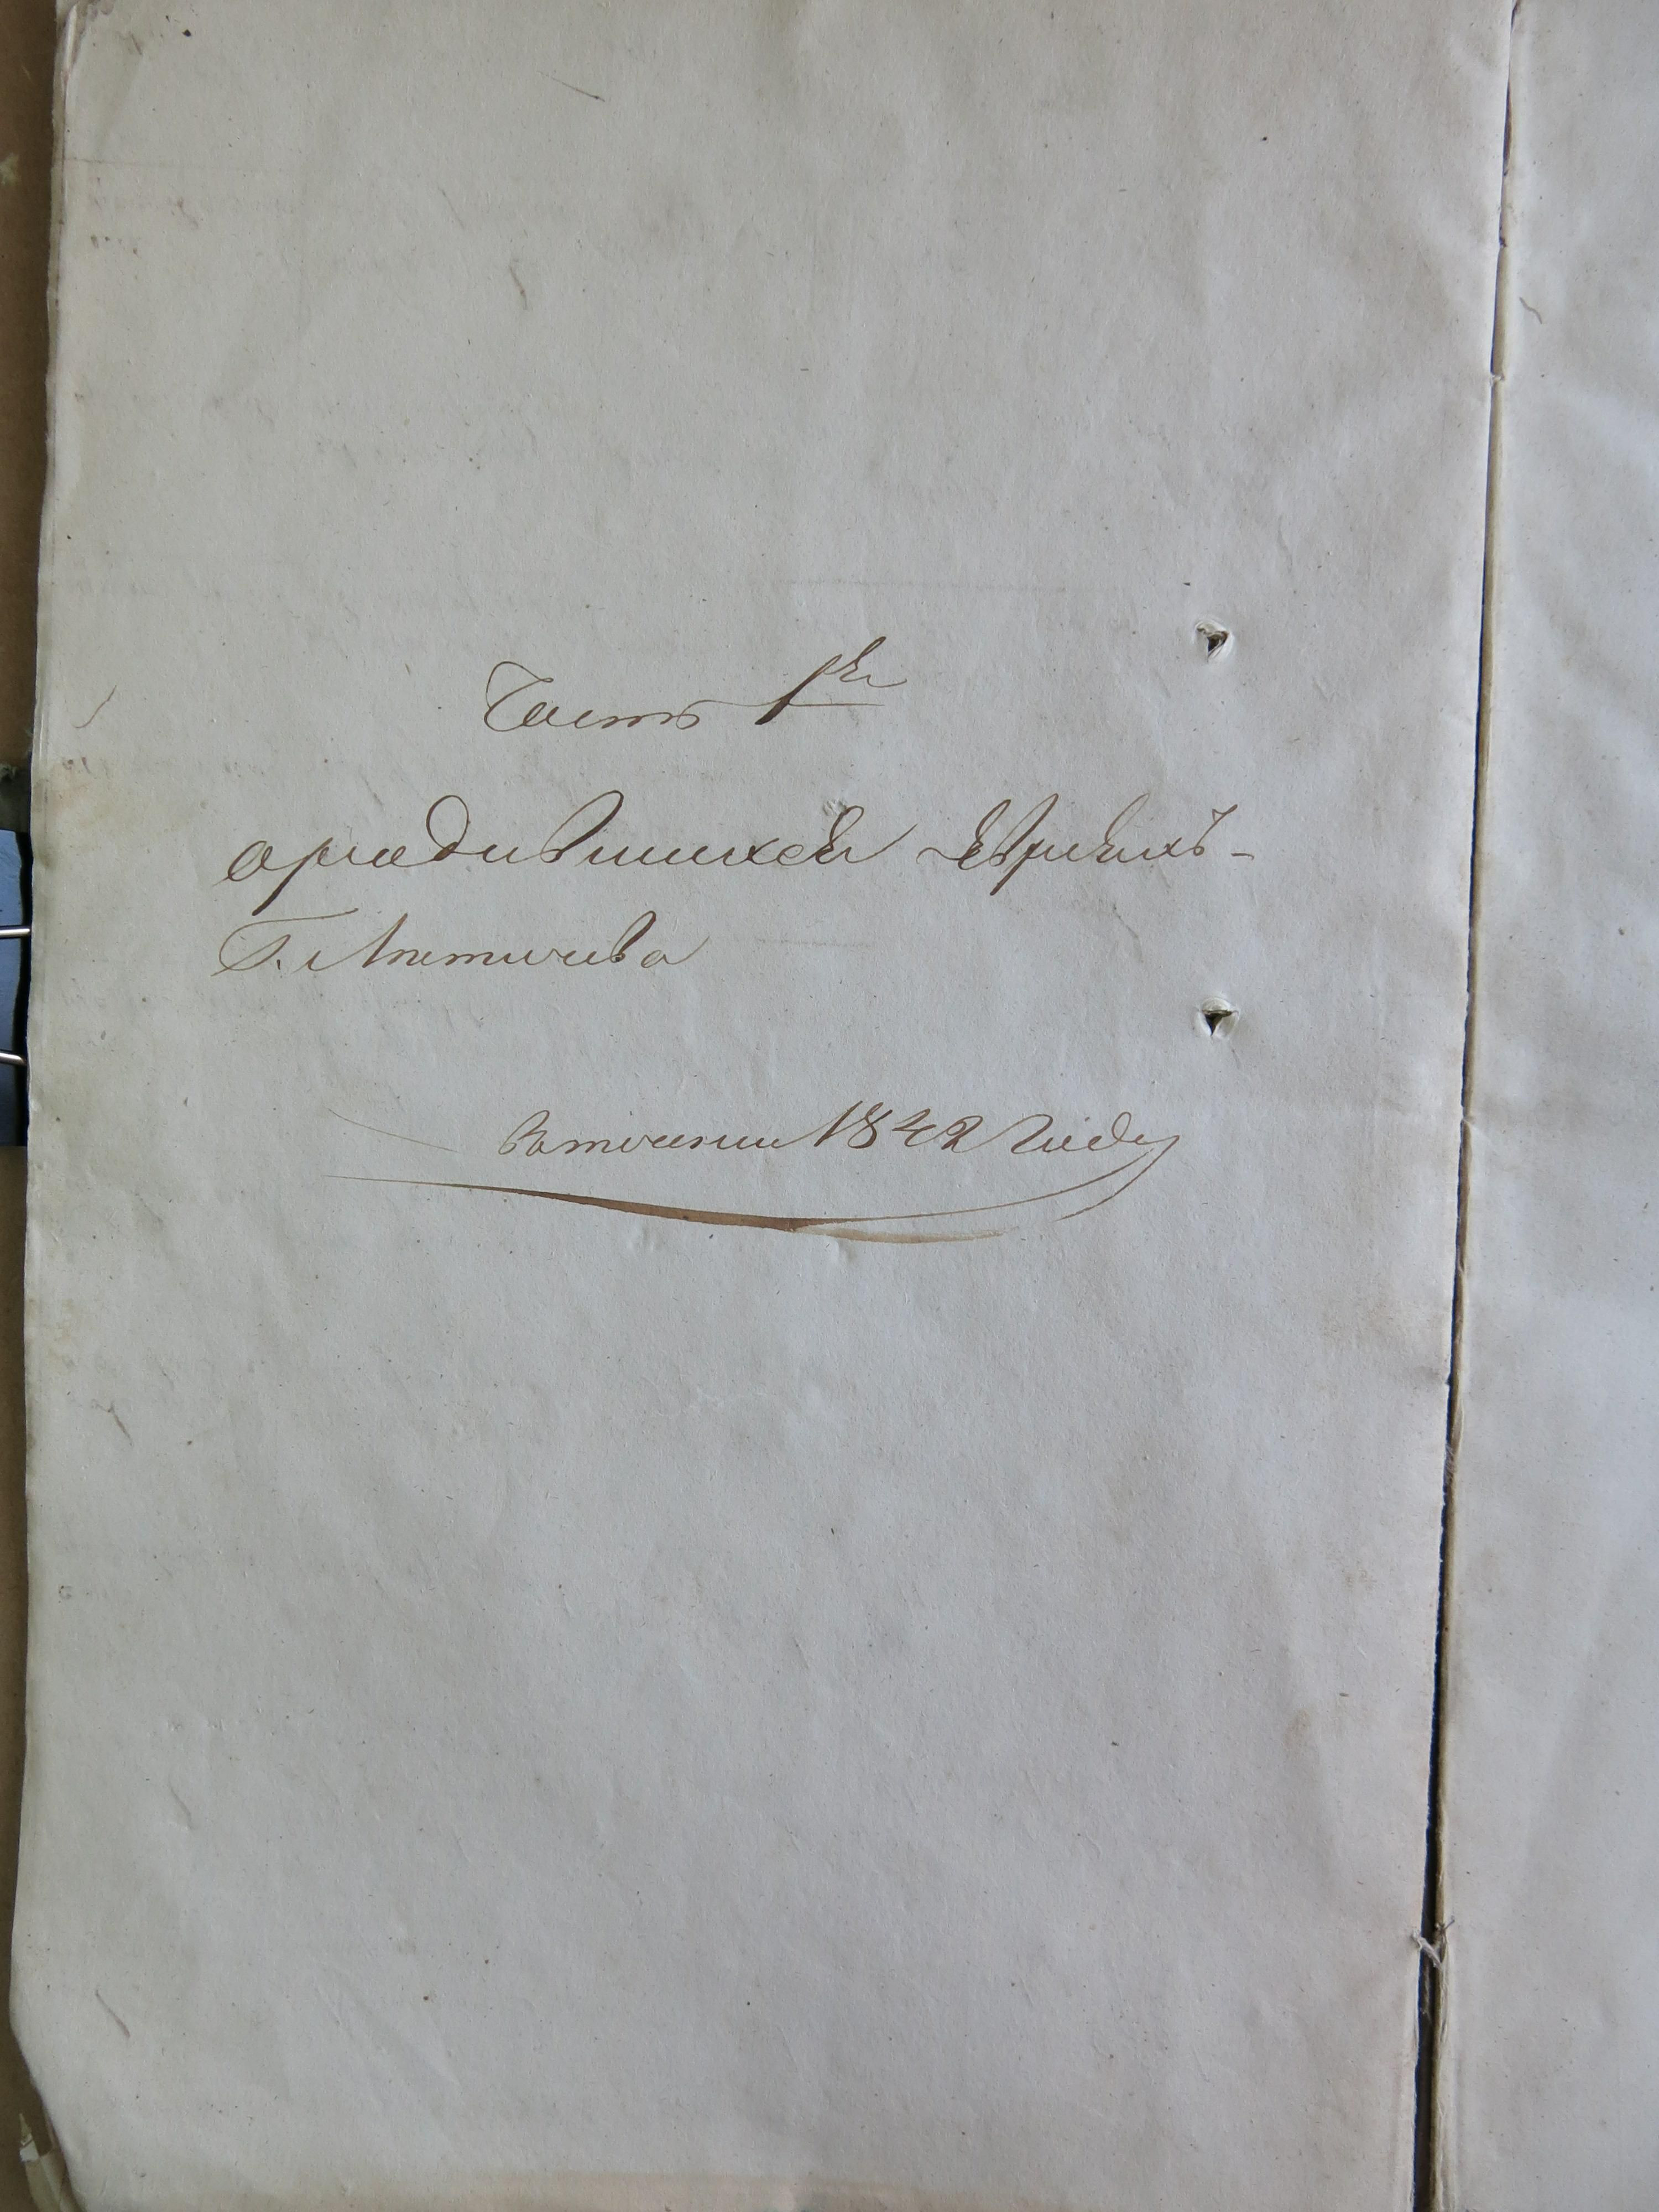 Часть 1ая
ородившихся Евреяхъ
Г. Летичева
Втечении 1842 году